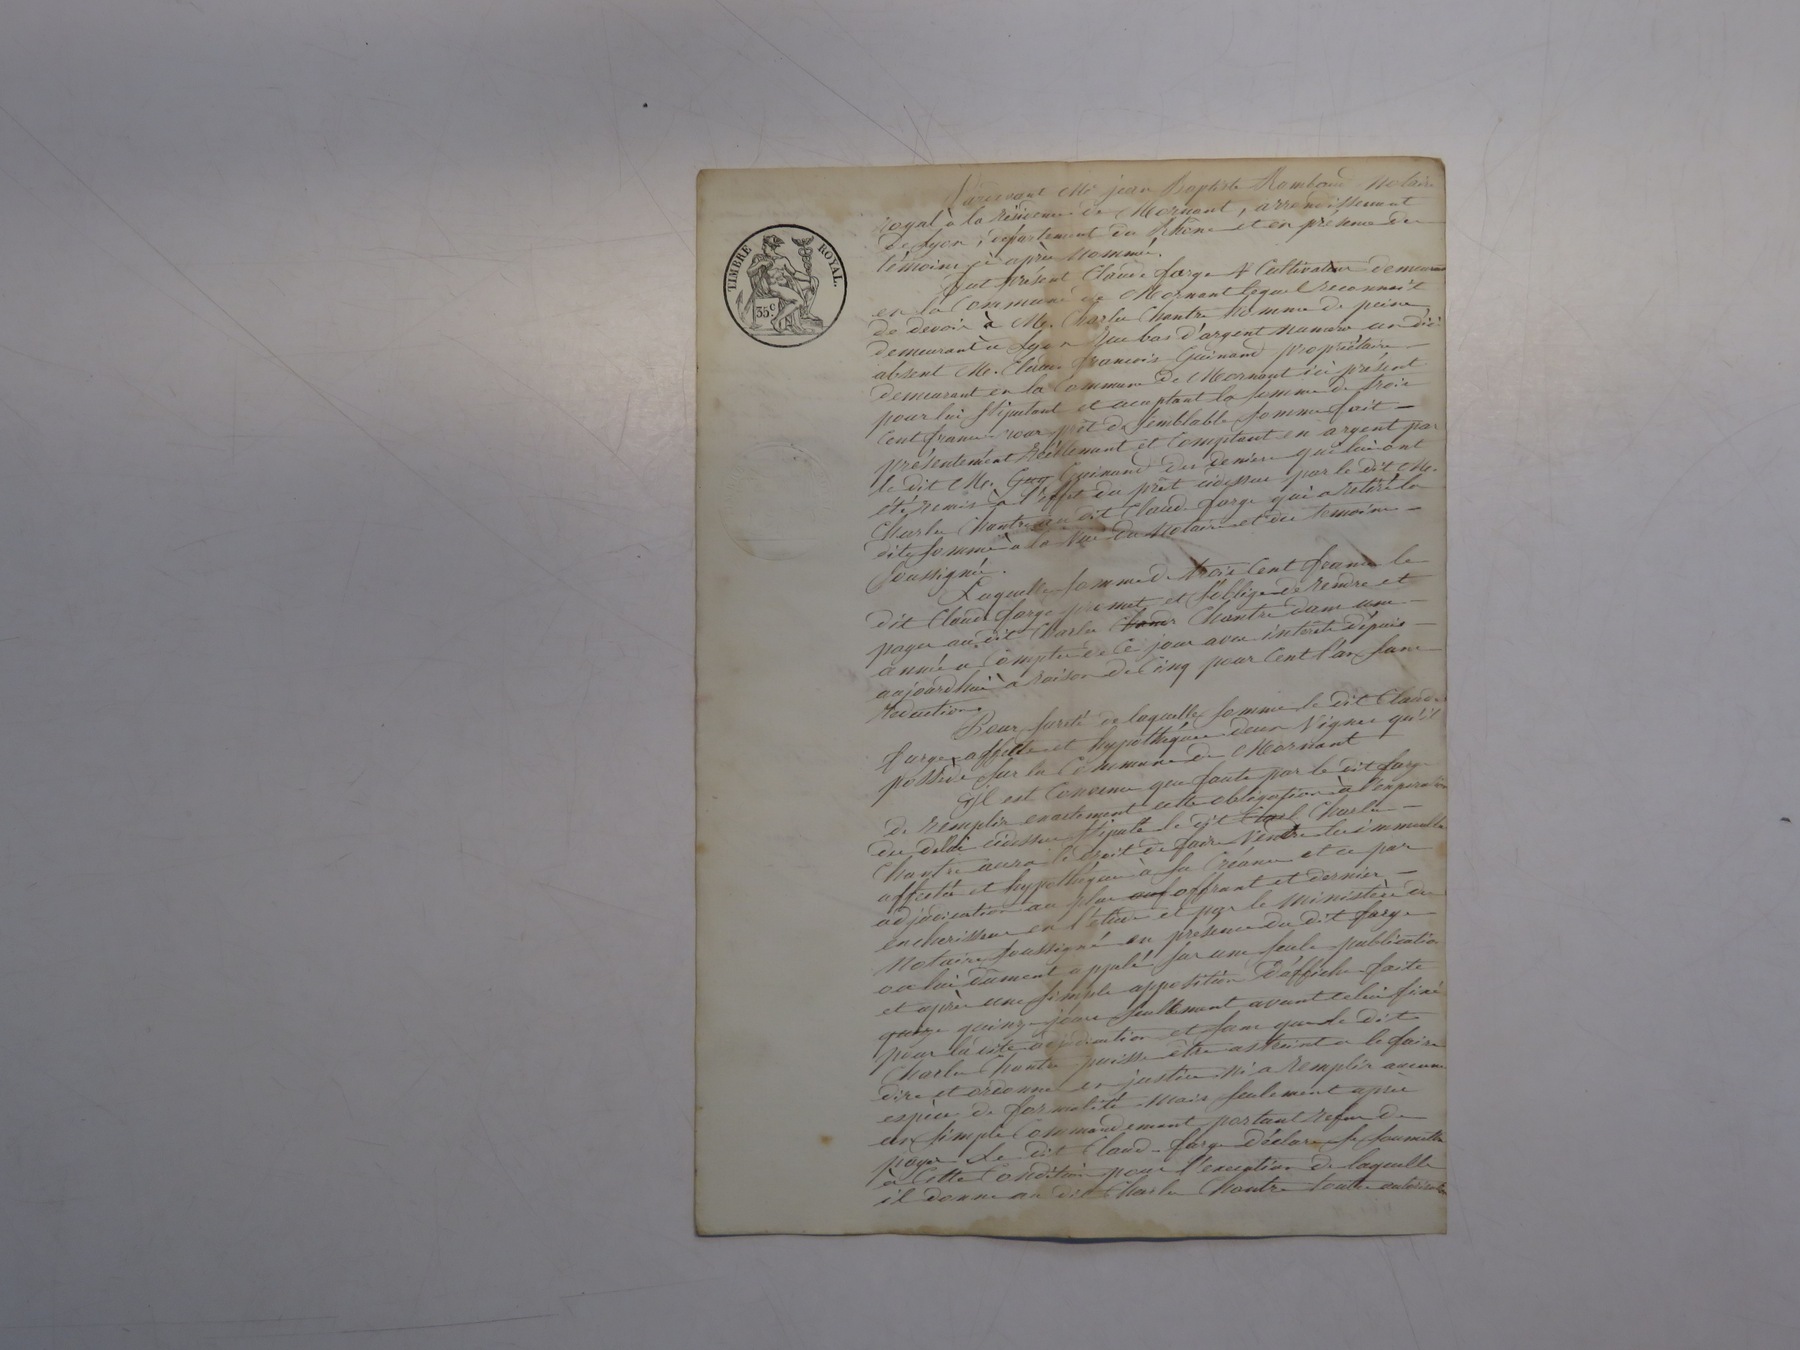 TIMBRE ROYAL.
35 c.
Pardevant Me jean Baptiste Rambaud Notaire
royal à la résidence de Mornant, arrondissement
de Lyon, département du Rhône et en présence des
témoins ci après nommés.
fut présent Claude farge Cultivateur demeurant
en la Commune de Mornant lequel reconnoit
de devoir à Mr. Charles Chantre homme de peine
demeurant à Lyon Rue bas d'argent numero un ici
absent Mr. Claude francois Guinand propriétaire
demeurant en la Commune de Mornant ici présent
pour lui stipulant et acceptant la somme de trois
Cent francs pour prêt de semblable somme fait
présentement Réellement et Comptant en argent par
le dit Mr. Guinand des deniers qui lui ont
été remis à l'effet du prêt cidessus par le dit Mr.
Charles Chantre au dit Claude farge qui a retiré la
dite somme à la Vue du Notaire et des temoins
soussignés.
Laquelle somme de trois Cent francs le
dit Claude farge promet et s'oblige de rendre et
payer au dit Charles Chantre dans une
année a Compter de Ce jour avec intérêts depuis
aujourdhui à raison de Cinq pour Cent l'an sans
Reduction.
Pour sureté de laquelle somme le dit Claude
farge affecte et hypothéque deux Vignes qu'il
possède sur la Commune de Mornant
Il est Convenu que faute par le dit farge
de Remplir exactement cette obligation à l'expiration
du delai cidessus stipulé le dit Charles
Chantre aura le droit de faire Vendre les immeubles
affectés et hypothéqués à sa Créance et ce par
adjudication au plus offrant et dernier
encherisseur en l'étude et par le ministère du
Notaire soussigné en présence du dit farge
ou lui dument appelé sur une seule publication
et après une simple apposition d'affiche faite
quinze jours seulement avant celui fixé
pour la dite adjudication et sans que le dit
Charles Chantre puisse être astreint a le faire
dire et ordonner en justice ni a Remplir aucune
espèce de formalité Mais seulement après
un simple Commandement portant refus de
payer Le dit Claude farge déclare se soumettre
à Cette Condition pour l'execution de laquelle
il donne au dit Charles Chantre toutes autorisations